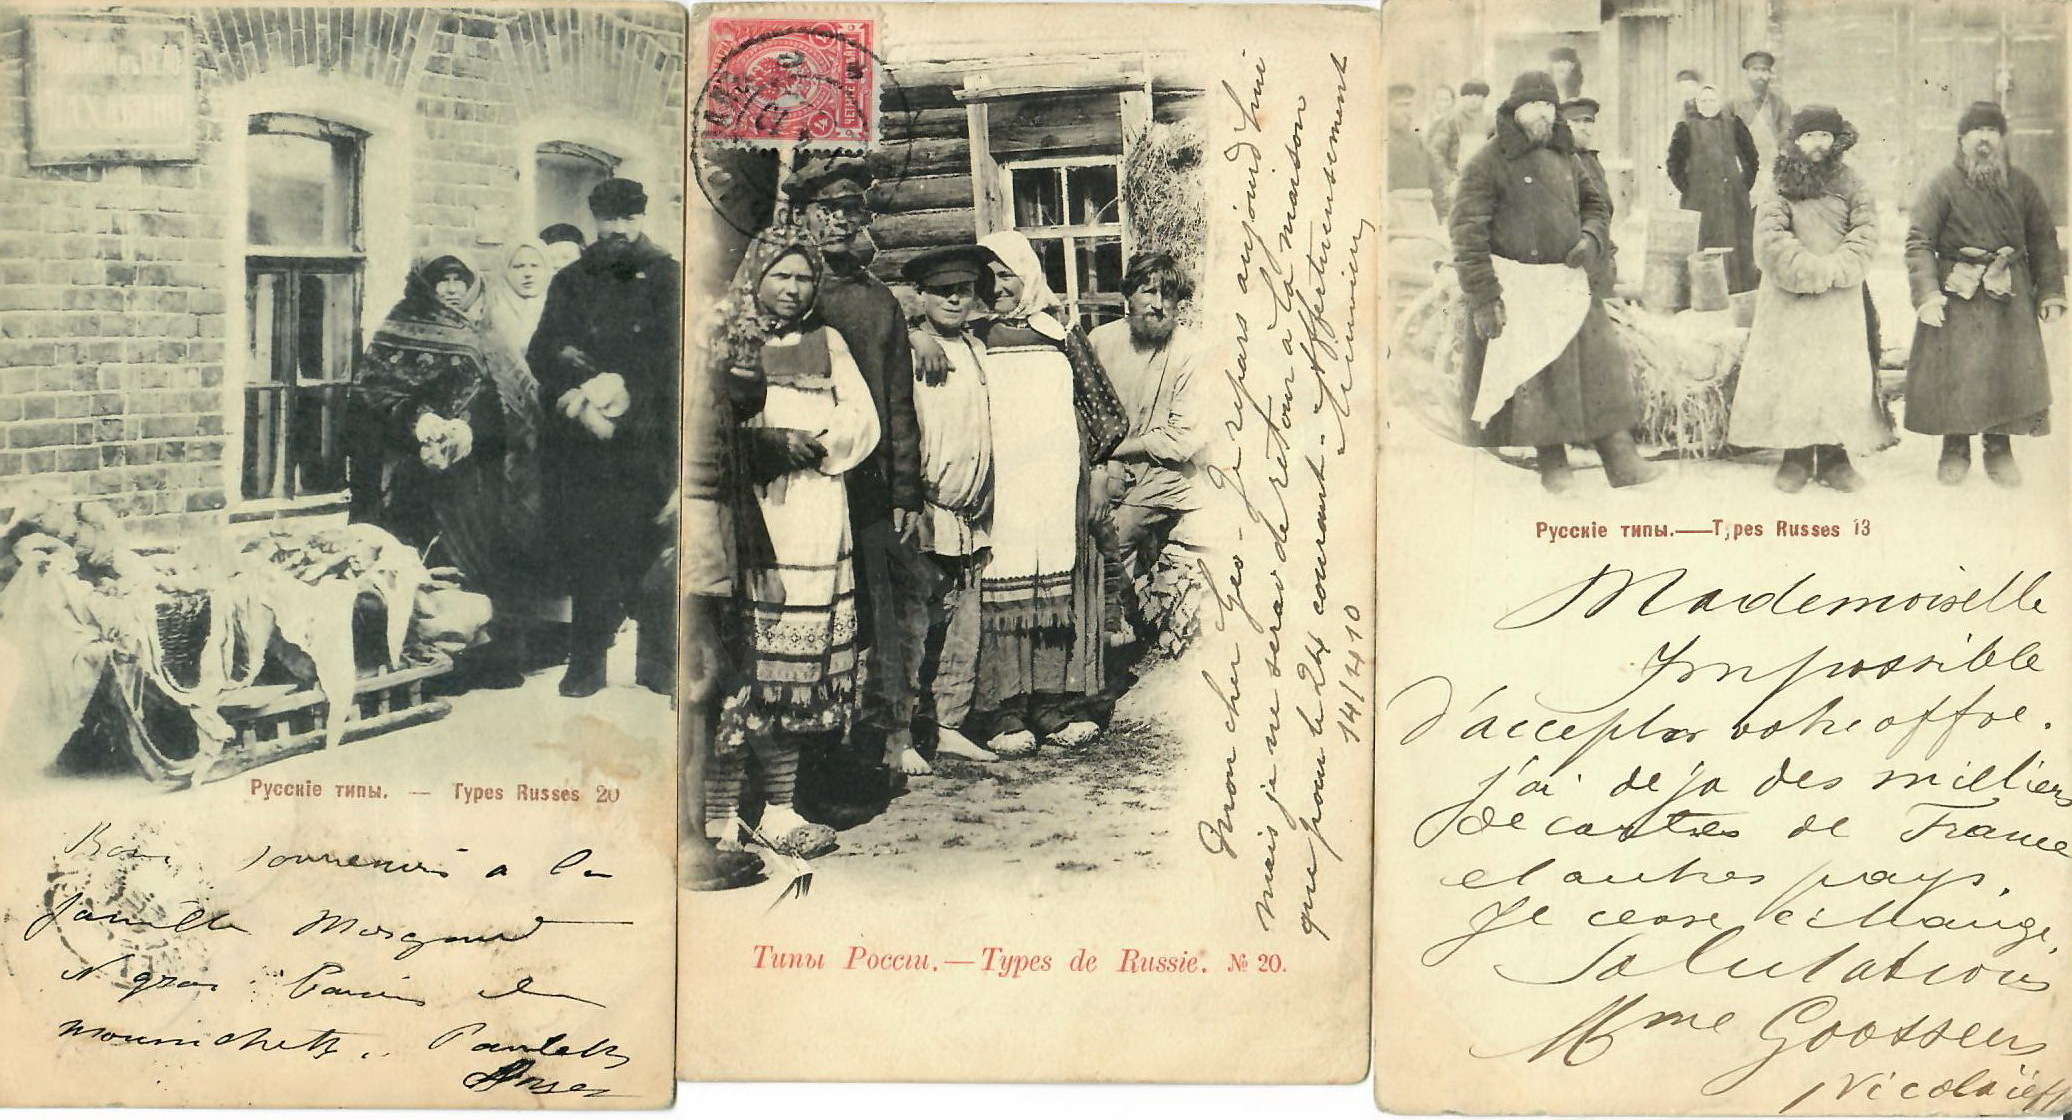 Русскіе типы. — Types Russes 20
Bons souvenirs a la
famille
N gros. Baisers de
Типы Россіи. — Types de Russie. № 20.
Mon cher Geo - Je repars aujourd'hui
mais je ne serai de retour à la maison
que pour le 24 courant - Affectueusement
14/4 10
Русскіе типы. — Types Russes 13
Mademoiselle
Impossible
d'accepter votre offre.
j'ai deja des milliers
de cartes de France
et autres pays.
Je cesse échange.
Salutations
Mme Goossens
Nicolaieff